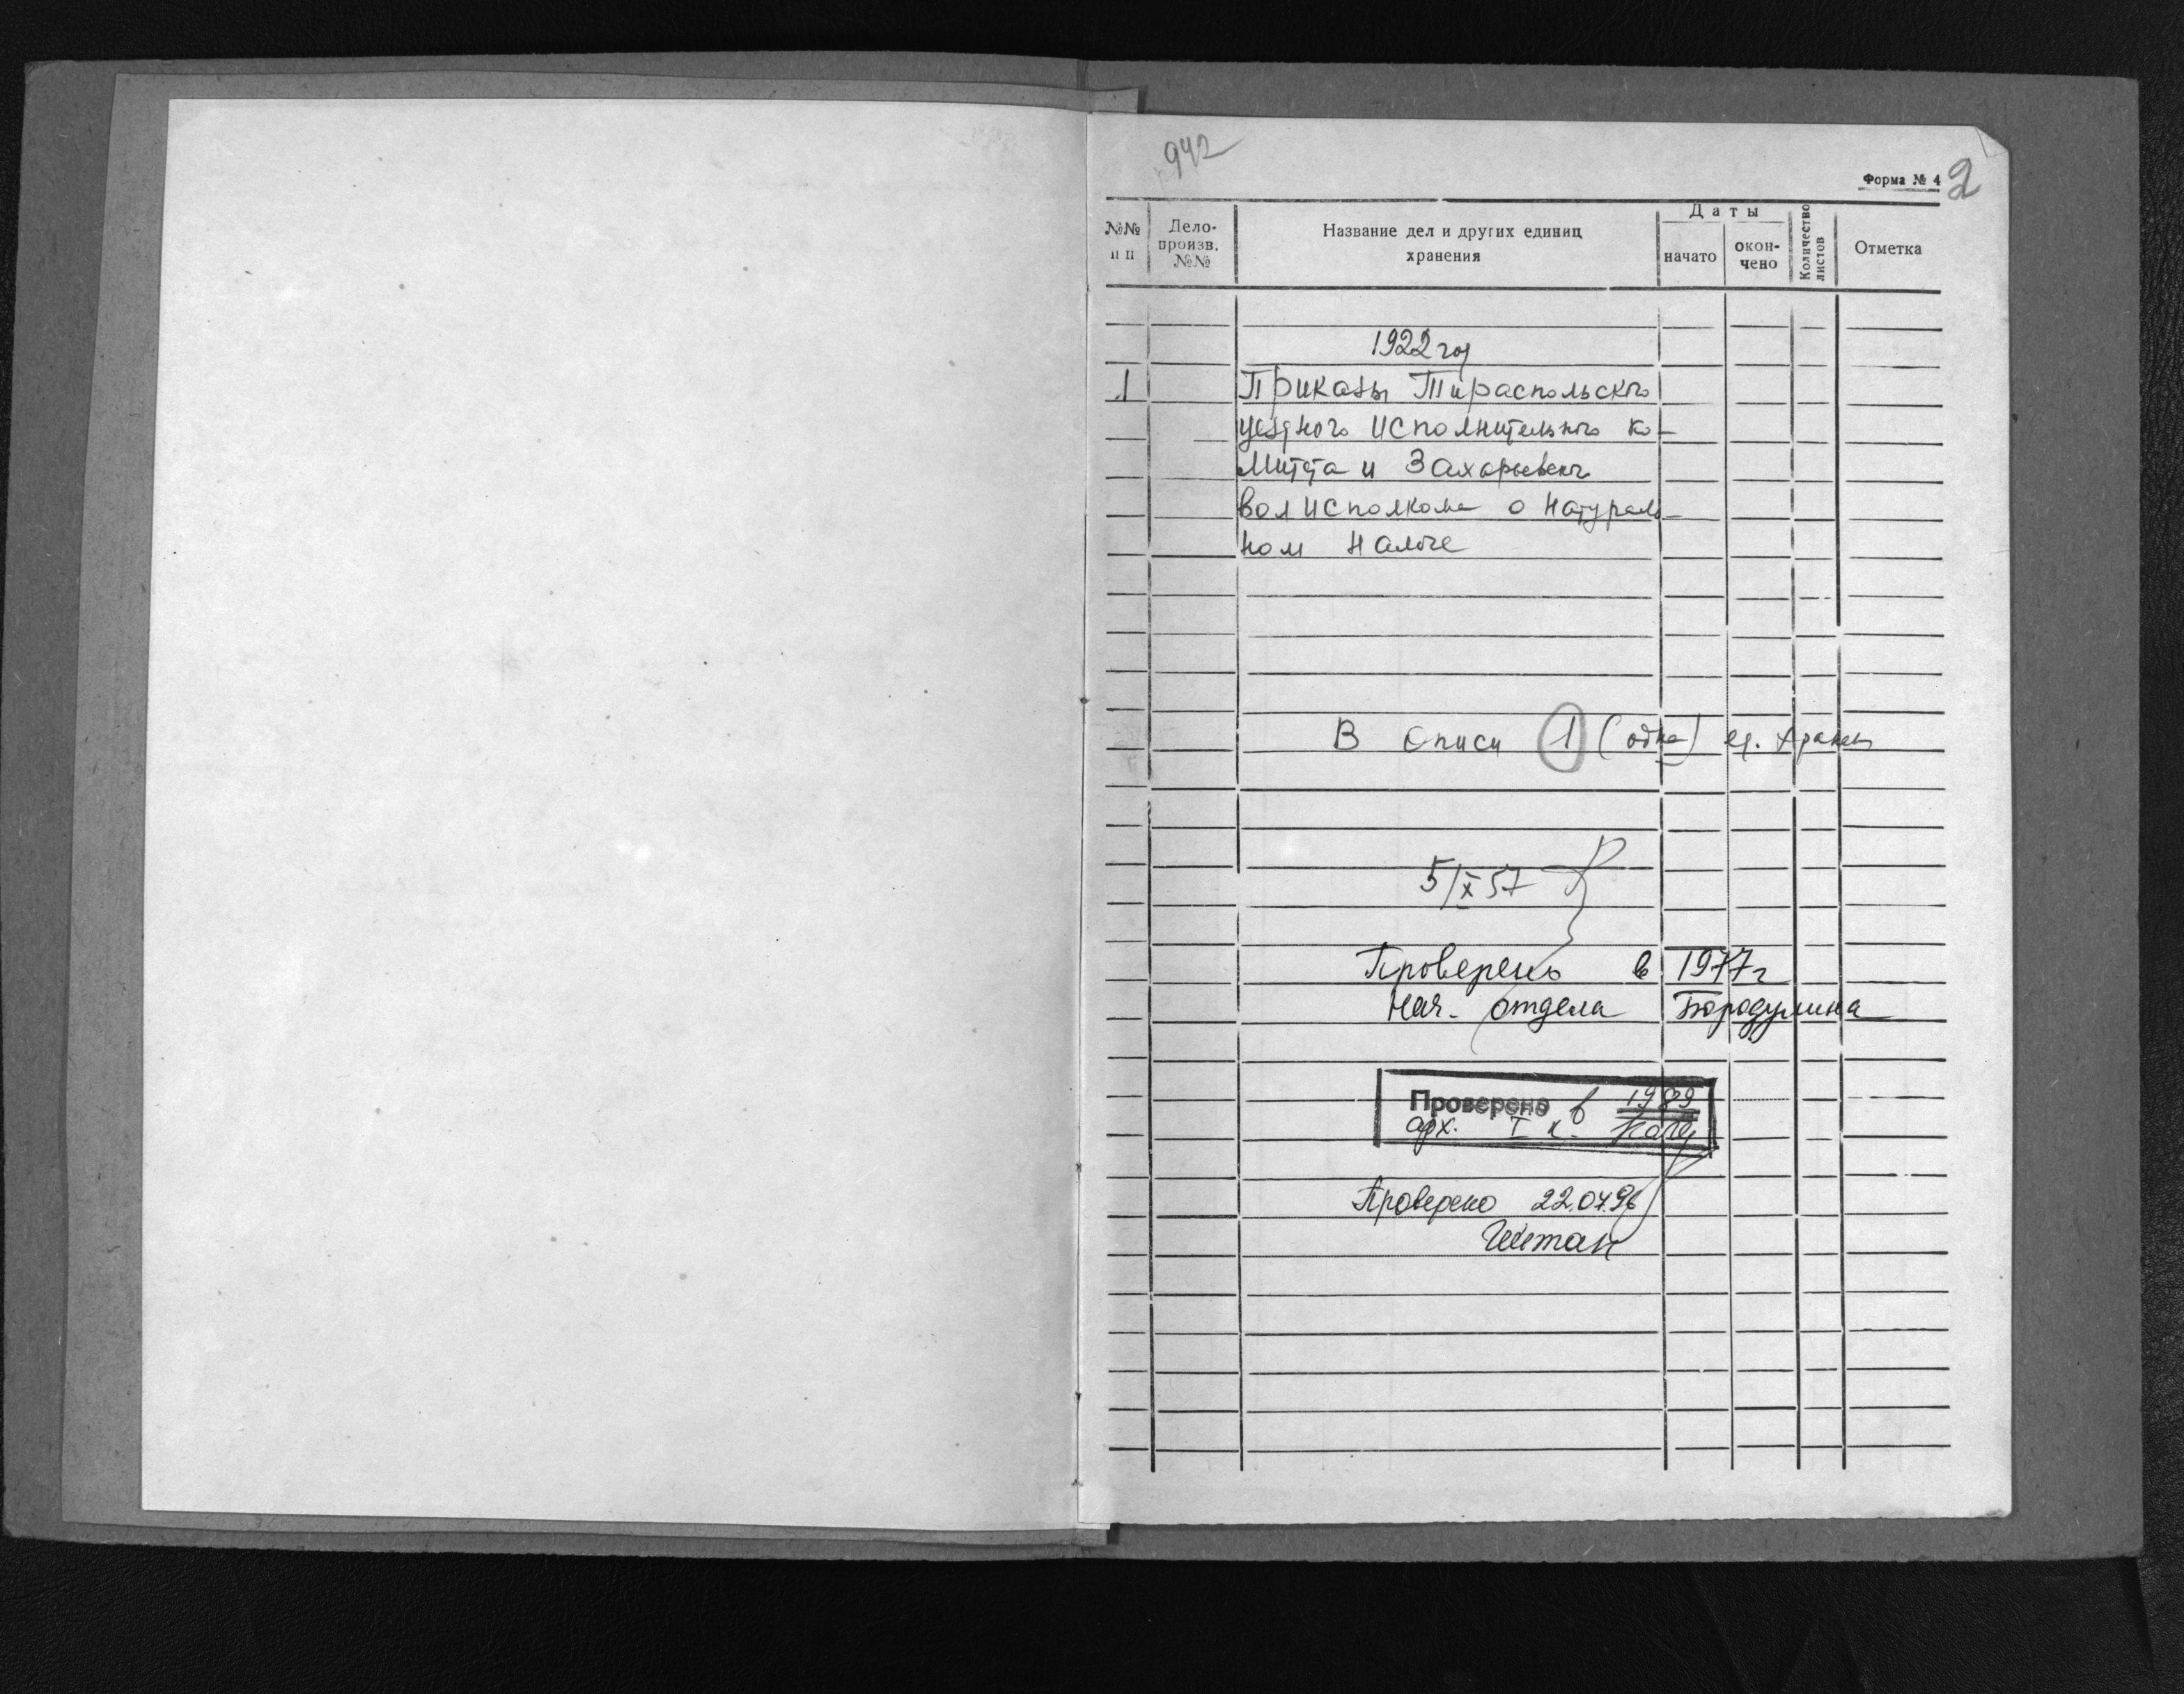 942
Форма № 4
2
№№ п п
Дело-произв. №№
Название дел и других единиц хранения
Даты
начато
окон-чено
Количество листов
Отметка
1922 год
1 Приказы Тираспольского
уездного исполнительного ко-
митета и Захарьевского
волисполкома о натураль-
ном налоге
В описи 1 (одна) ед. хранен
5/X 57
Проверено в 1977 г
Нач. отдела Бородулина
Проверено в 1989
арх. I к.
Проверено 22.04.96